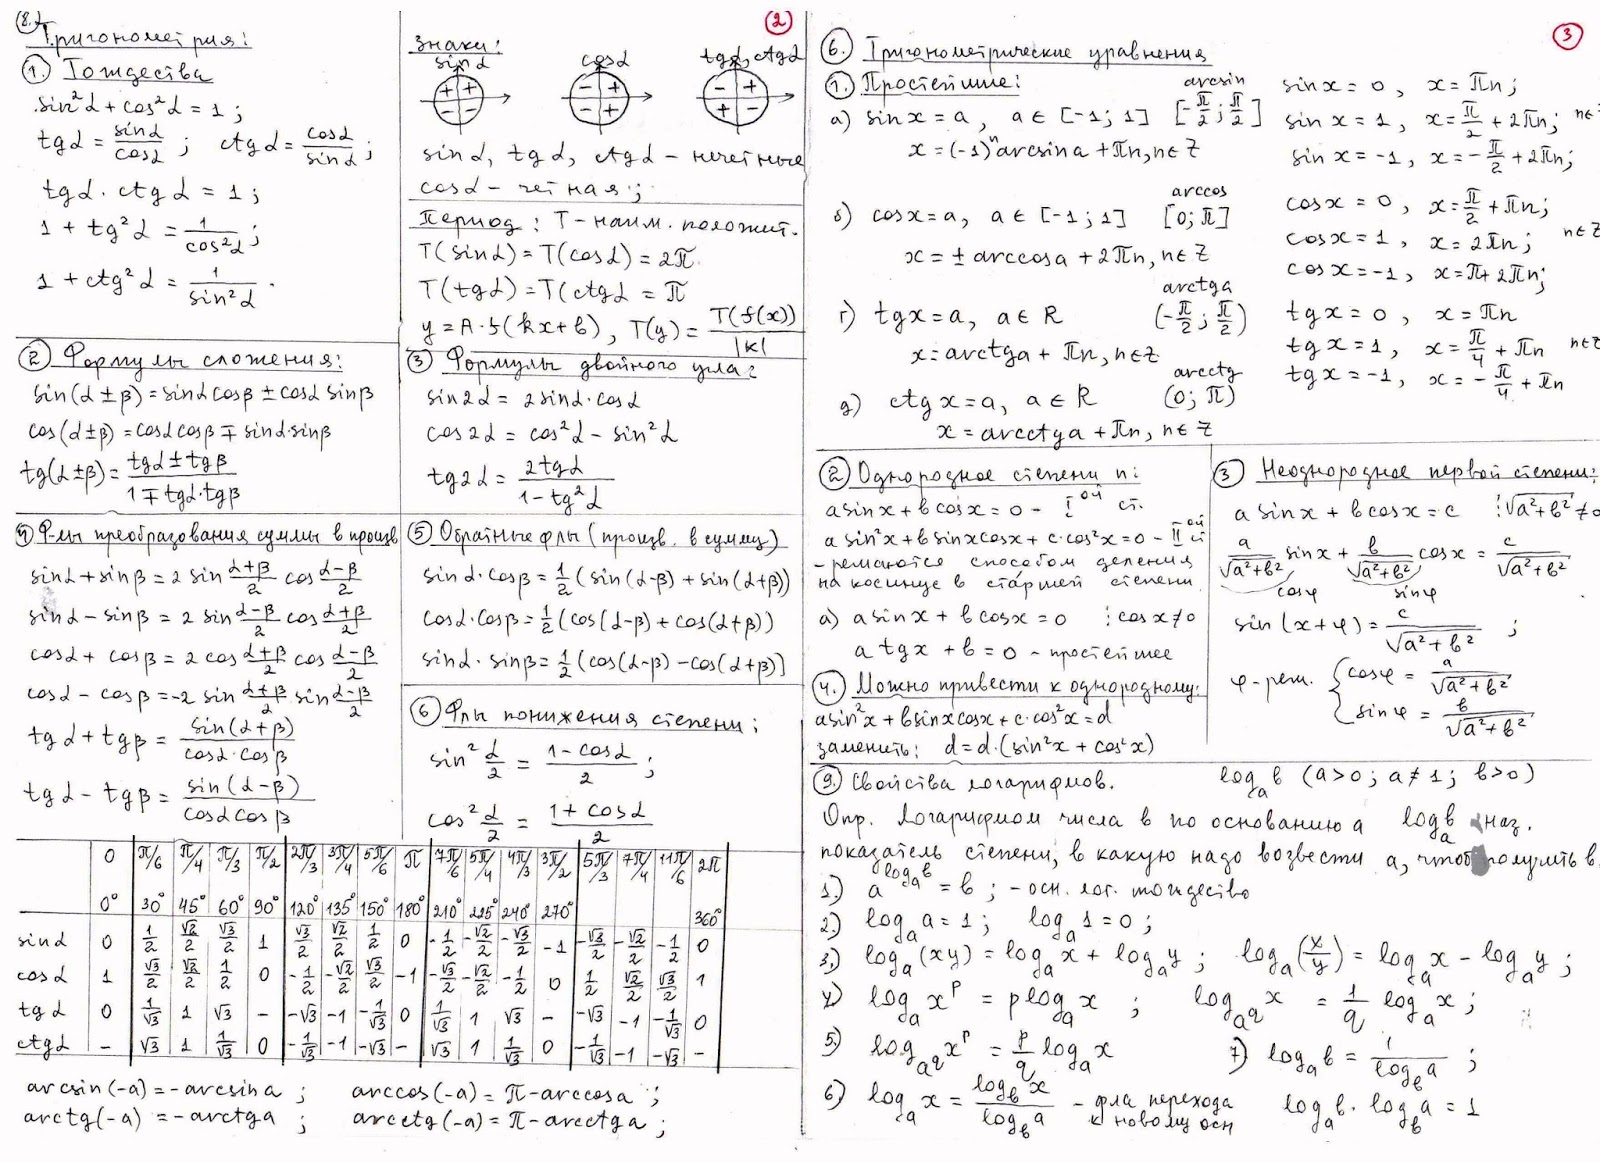 8.2
②
Тригонометрия:
① Тождества
sin²α + cos²α = 1 ;
tgα = sinα/cosα ; ctgα = cosα/sinα ;
tgα · ctgα = 1 ;
1 + tg²α = 1/cos²α ;
1 + ctg²α = 1/sin²α .
знаки:
sinα cosα tgα, ctgα
+ + - + - +
- - - + + -
sinα, tgα, ctgα – нечетные
cosα – четная ;
Период : T – наим. положит.
T(sinα) = T(cosα) = 2π
T(tgα) = T(ctgα = π
y = A·f(kx+b) , T(y) = T(f(x))/|k|
② Формулы сложения:
sin(α ± β) = sinα cosβ ± cosα sinβ
cos(α ± β) = cosα cosβ ∓ sinα·sinβ
tg(α ± β) = (tgα ± tgβ)/(1 ∓ tgα·tgβ)
③ Формулы двойного угла:
sin2α = 2sinα·cosα
cos2α = cos²α – sin²α
tg2α = 2tgα/(1 – tg²α)
④ Ф-лы преобразования суммы в произв
sinα + sinβ = 2 sin (α+β)/2 cos (α-β)/2
sinα – sinβ = 2 sin (α-β)/2 cos (α+β)/2
cosα + cosβ = 2 cos (α+β)/2 cos (α-β)/2
cosα – cosβ = -2 sin (α+β)/2 sin (α-β)/2
tgα + tgβ = sin(α+β)/(cosα·cosβ)
tgα – tgβ = sin(α-β)/(cosα cosβ)
⑤ Обратные ф-лы (произв. в сумму)
sinα·cosβ = 1/2 (sin(α-β) + sin(α+β))
cosα·cosβ = 1/2 (cos(α-β) + cos(α+β))
sinα·sinβ = 1/2 (cos(α-β) – cos(α+β)]
⑥ Ф-лы понижения степени:
sin² α/2 = (1 – cosα)/2 ;
cos² α/2 = (1 + cosα)/2
0 π/6 π/4 π/3 π/2 2π/3 3π/4 5π/6 π 7π/6 5π/4 4π/3 3π/2 5π/3 7π/4 11π/6 2π
0° 30° 45° 60° 90° 120° 135° 150° 180° 210° 225° 240° 270° 360°
sinα 0 1/2 √2/2 √3/2 1 √3/2 √2/2 1/2 0 -1/2 -√2/2 -√3/2 -1 -√3/2 -√2/2 -1/2 0
cosα 1 √3/2 √2/2 1/2 0 -1/2 -√2/2 √3/2 -1 -√3/2 -√2/2 -1/2 0 1/2 √2/2 √3/2 1
tgα 0 1/√3 1 √3 - -√3 -1 -1/√3 0 1/√3 1 √3 - -√3 -1 -1/√3 0
ctgα - √3 1 1/√3 0 -1/√3 -1 -√3 - √3 1 1/√3 0 -1/√3 -1 -√3 -
arcsin(-a) = -arcsina ; arccos(-a) = π – arccosa ;
arctg(-a) = -arctga ; arcctg(-a) = π – arcctga ;
③
⑥. Тригонометрические уравнения
①. Простейшие:
arcsin
а) sinx = a , a ∈ [-1; 1] [-π/2 ; π/2]
x = (-1)ⁿ arcsina + πn, n ∈ Z
arccos
б) cosx = a, a ∈ [-1; 1] [0; π]
x = ± arccosa + 2πn, n ∈ Z
arctga
г) tgx = a, a ∈ R (-π/2 ; π/2)
x = arctga + πn, n ∈ Z
arcctg
д) ctgx = a, a ∈ R (0; π)
x = arcctga + πn, n ∈ Z
sinx = 0 , x = πn;
sinx = 1 , x = π/2 + 2πn; n∈Z
sinx = -1 , x = -π/2 + 2πn;
cosx = 0 , x = π/2 + πn;
cosx = 1 , x = 2πn; n∈Z
cosx = -1 , x = π + 2πn;
tgx = 0 , x = πn
tgx = 1 , x = π/4 + πn n∈Z
tgx = -1 , x = -π/4 + πn
② Однородное степени n:
asinx + bcosx = 0 – I ой ст.
asin²x + bsinxcosx + c·cos²x = 0 – II ой ст
– решаются способом деления
на косинус в старшей степени
а) asinx + bcosx = 0 :cosx ≠ 0
a tgx + b = 0 – простейшее
③ Неоднородное первой степени:
asinx + bcosx = c :√(a²+b²) ≠ 0
a/√(a²+b²) sinx + b/√(a²+b²) cosx = c/√(a²+b²)
cosφ sinφ
sin(x+φ) = c/√(a²+b²) ;
φ – реш. { cosφ = a/√(a²+b²)
sinφ = b/√(a²+b²)
④. Можно привести к однородному:
asin²x + bsinxcosx + c·cos²x = d
заменить: d = d·(sin²x + cos²x)
⑨. Свойства логарифмов. logₐb (a>0; a≠1; b>0)
Опр. Логарифмом числа b по основанию a logₐb наз.
показатель степени, в какую надо возвести a, чтоб получить b.
1.) a^(logₐb) = b ; – осн. лог. тождество
2.) logₐa = 1 ; logₐ1 = 0 ;
3.) logₐ(xy) = logₐx + logₐy ; logₐ(x/y) = logₐx – logₐy ;
4) logₐx^p = plogₐx ; log_(a^q) x = 1/q logₐx ;
5) log_(a^q) x^p = p/q logₐx
7) logₐb = 1/log_b a ;
6) logₐx = log_b x/log_b a – ф-ла перехода
к новому осн
logₐb · log_b a = 1